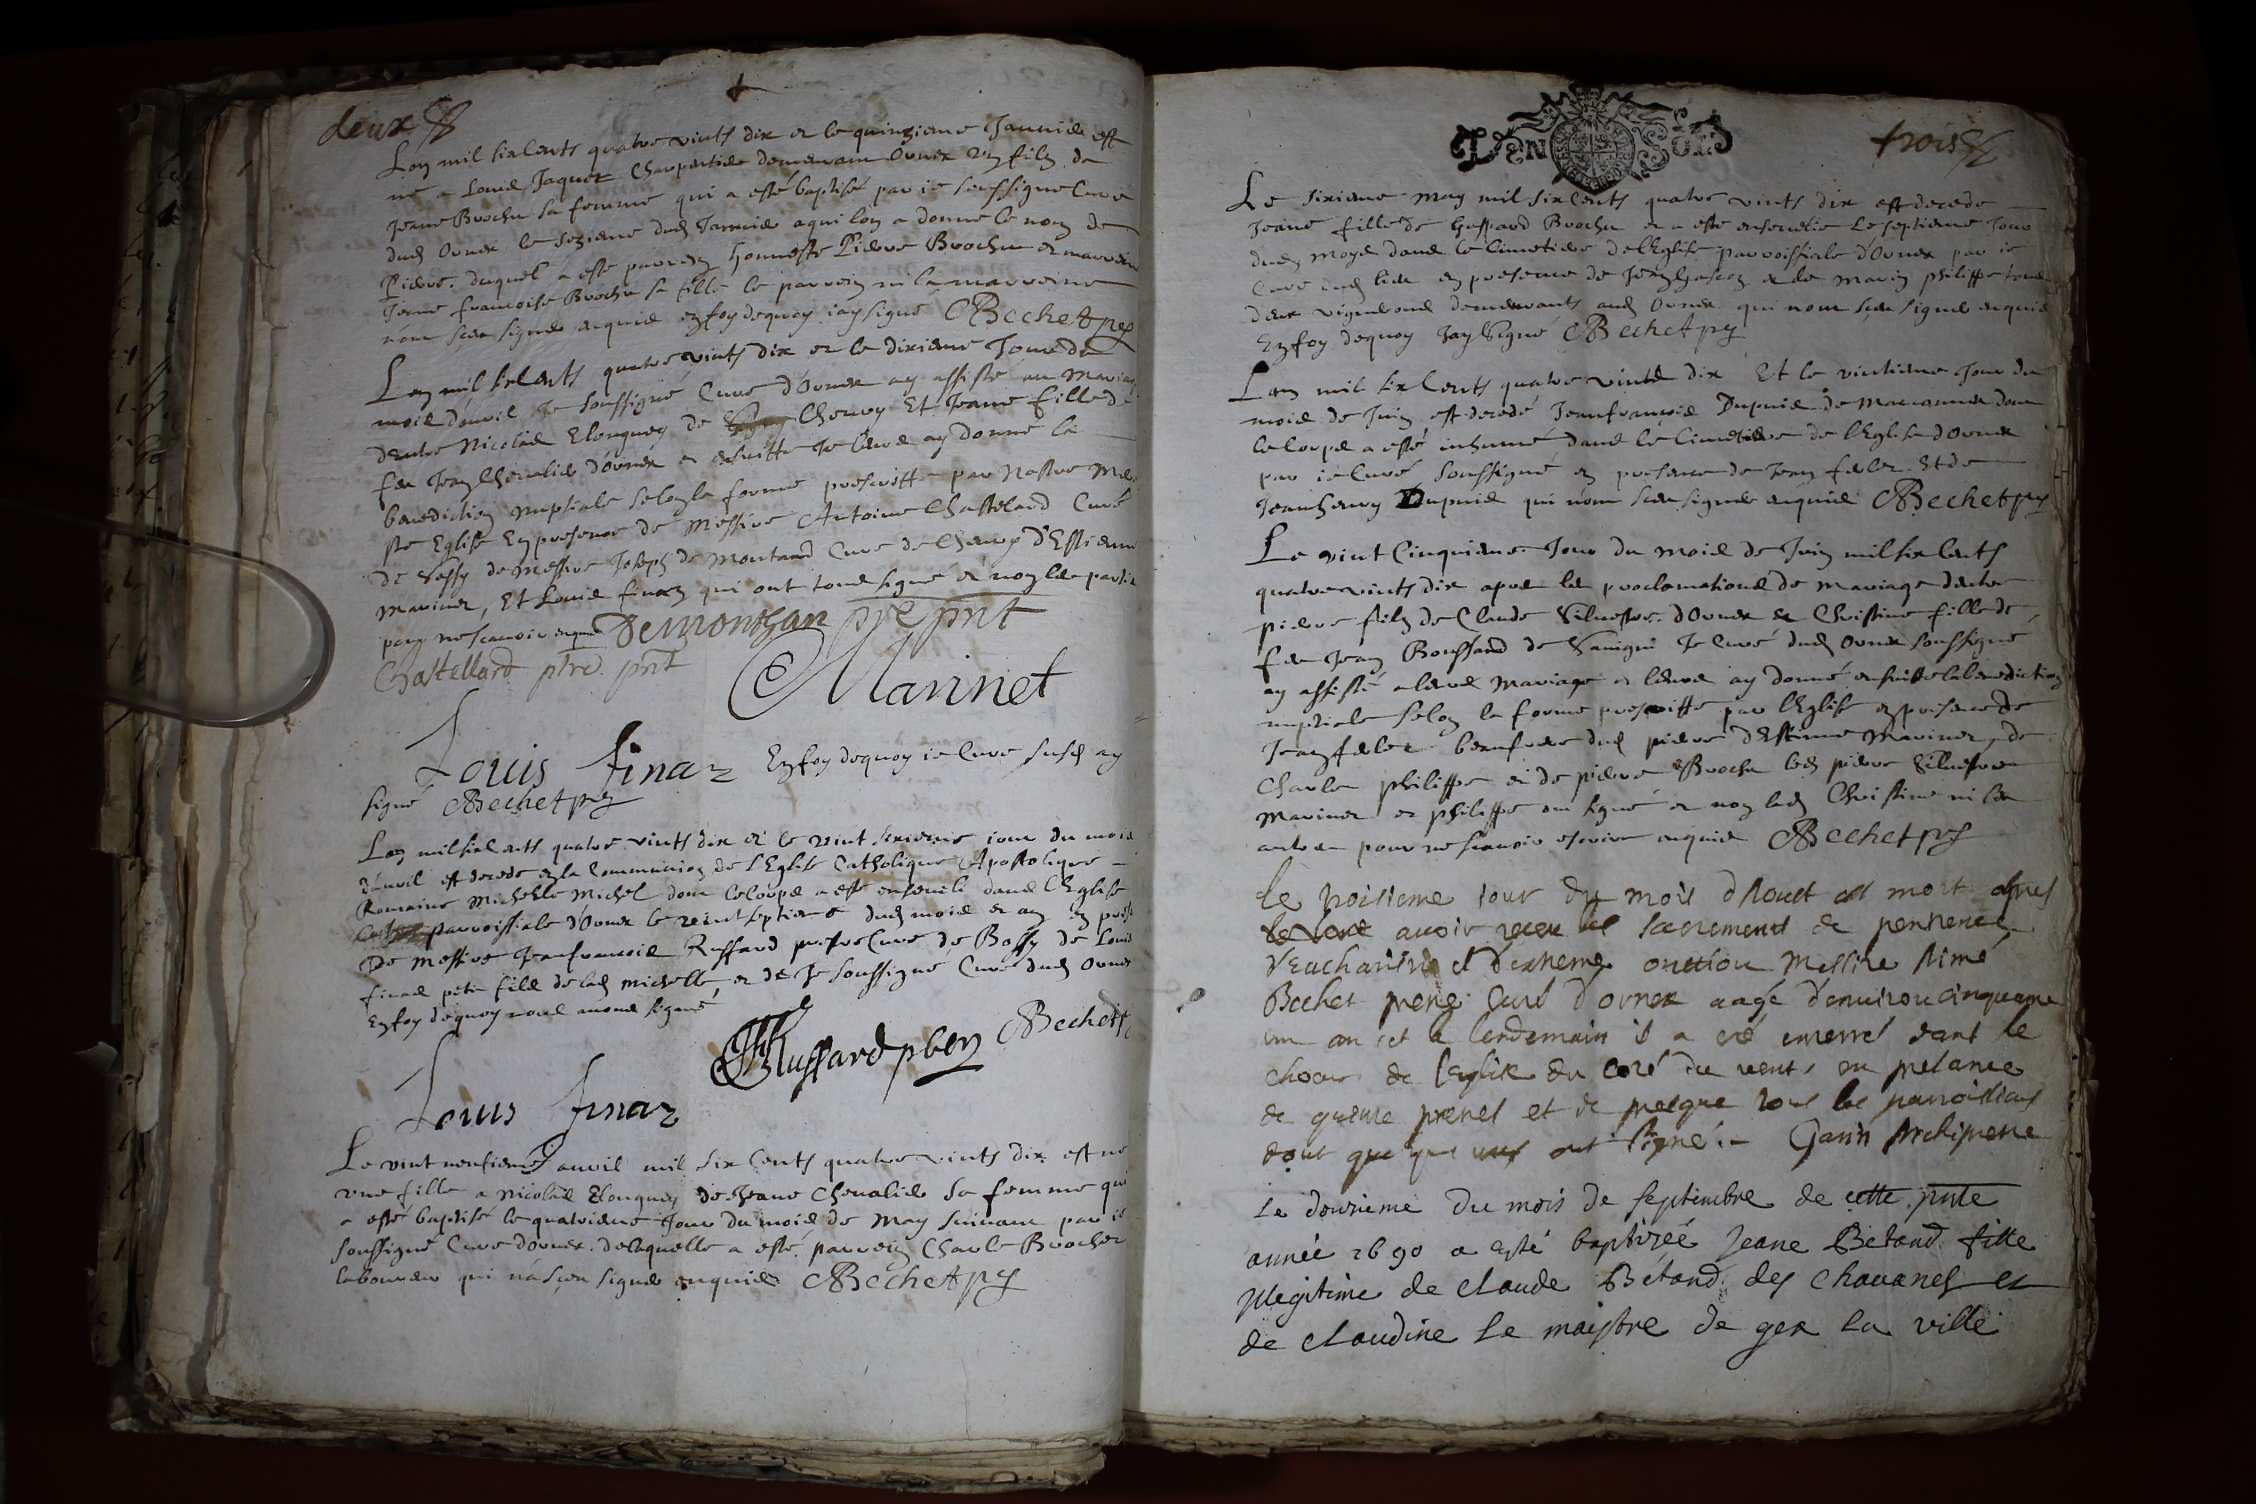 deux
Lan mil six cents quatre vints dix et le quinzieme Janvier est
né a Louis Jaquet Charpentier demeurant Ornex un filz de
Jeane Brochu sa femme qui a esté baptisé par ie soussigné Curé
dud Ornex le sezieme dud Janvier a qui lon a donné le nom de
Pierre. duquel a esté parrein honneste Pierre Brochu et marreine
Jeane francoise Brochu sa fille le parrein ni la marreine
n'ont sceu signer enquis en foy dequoy iay signé Bechet
Lan mil six cents quatre vints dix et le dixieme Jour du
mois davril Je soussigné Curé d'Ornex ay assisté au Mariage
dentre Nicolas Elonguey de Chevry Et Jeane fille de
feu Jean Chevalier d'Ornex et ensuitte Je leur ay donné la
benediction nuptiale selon la forme prescritte par Nostre Mere
Ste Eglise En presence de Messire Antoine Chastelard Curé
de Sessy de Messire Joseph de Montand Curé de Chevry d'Estienne
Marinet, Et Louis finaz qui ont tous signé et non les parties
pour ne scavoir enquis Demonthan pre pnt
Chastellard ptre pnt
E Marinet
Louis finaz En foy dequoy ie Curé susd ay
signé Bechet
Lan mil six cents quatre vints dix et le vint sixieme iour du mois
d'avril est decede en la Communion de l'Eglise Catholique Apostolique
Romaine Michelle Michel dont le corps a esté enseveli dans l'Eglise
parroissiale d'Ornex le vint septieme dud mois et an en pres
De Messire Jeanfrancois Ruffard prestre Curé de Bossy de Louis
finas petit fils de lad michelle, et de Je soussigné Curé dud Ornex
En foy dequoy nous avons signé
Ruffard pber Bechet
Louis finaz
Le vint neufieme avril mil six cents quatre vints dix est né
une fille a Nicolas Elonguey de Jeane Chevalier sa femme qui
a esté baptisé le quatrieme Jour du mois de May suivant par ie
soussigné Curé d'Ornex. de laquelle a esté parrein Charle Brochet
laboureur qui n'a sceu signer enquis Bechet
GEN SOLS
trois
Le sixieme may mil six cents quatre vints dix est decede
Jeane fille de Gaspard Brochu et a esté ensevelie le septieme Jour
dud moys dans le Cimetiere de l'Eglise parroissiale d'Ornex par ie
Curé dud lieu en presence de Jean Gascon et de Marin philippe tous
deux vignerons demeurants aud Ornex qui n'ont sceu signer enquis
En foy dequoy Jay signé Bechet
Lan mil six cents quatre vints dix Et le vintieme Jour du
mois de Juin est decedé Jeanfrancois Dupuis de Maconnex dont
le corps a esté inhumé dans le Cimetiere de l'Eglise d'Ornex
par ie Curé soussigné en presence de Jean feder Et de
Jeanhenry Dupuis qui n'ont sceu signer enquis Bechet
Le vint Cinquieme Jour du mois de Juin mil six cents
quatre vints dix apres les proclamations de mariage dentre
pierre filz de Claude Silvestre d'Ornex et Christine fille de
feu Jean Boussard de Sauvigni Je Curé dud Ornex soussigné
ay assisté a leur Mariage et leur ay donné ensuitte la benediction
nuptiale selon la forme prescritte par l'Eglise en presence de
Jean feder beaufrere dud pierre d'Estienne Marinet, de
Charle philippe et de pierre Brochu led pierre Silvestre
Marinet et philippe ont signé et non lad Christine ni les
autres pour ne scavoir escrire enquis Bechet
Le troisieme iour du mois d'Aoust est mort apres
avoir receu les sacrements de penitence
d'Eucharistie et d'extreme onction Messire Aimé
Bechet pretre Curé d'ornex aagé d'environ cinquante
un an et le lendemain il a eté enterré dans le
choeur de l'eglise du coté du vent, en presance
de quatre pretres et de presque tous les parroissiens
dont quelques uns ont signé Garin Archipretre
Le douzieme du mois de septembre de cette pnte
année 1690 a esté baptizéé Jeane Bétand fille
legitime de Claude Bétand des Chavanes et
de claudine le maistre de gex la ville